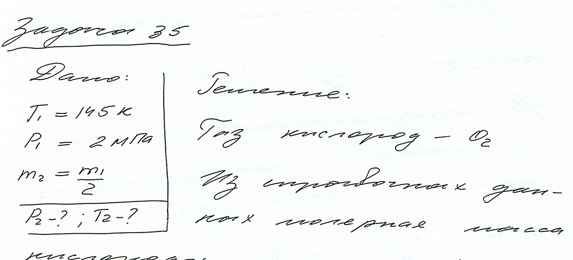 Задача 35
Дано:
T₁ = 145 К
P₁ = 2 мПа
m₂ = m₁/2
P₂-? ; T₂-?
Решение:
Газ кислород – O₂
Из справочных дан-
ных молярная масса
кислорода: